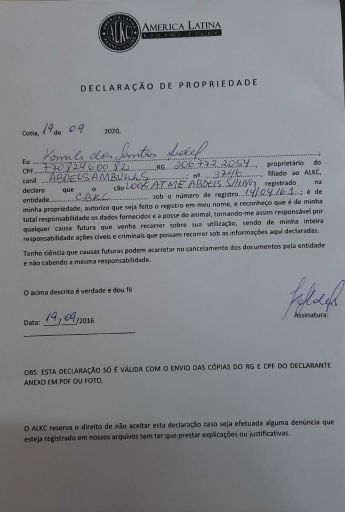 ALKC
AMERICA LATINA
KENNEL CLUB
DECLARAÇÃO DE PROPRIEDADE
Cotia, 19 de 09 2020,
Eu dos Santos
CPF RG proprietário do
canil nº 3746, filiado ao ALKC,
declaro que o cão LOOK AT ME ABDEIS registrado na
entidade CBKC sob o número de registro ; é de
minha propriedade, autorizo que seja feito o registro em meu nome, e reconheço que é de minha
total responsabilidade os dados fornecidos e a posse do animal, tornando-me assim responsável por
qualquer causa futura que venha recorrer sobre sua utilização, sendo de minha inteira
responsabilidade ações cíveis e criminais que possam recorrer sob as informações aqui declaradas.
Tenho ciência que causas futuras podem acarretar no cancelamento dos documentos pela entidade
e não cabendo a mesma responsabilidade.
O acima descrito é verdade e dou fé
Assinatura:
Data: 19/09/2016
OBS: ESTA DECLARAÇÃO SÓ É VÁLIDA COM O ENVIO DAS CÓPIAS DO RG E CPF DO DECLARANTE
ANEXO EM PDF OU FOTO.
O ALKC reserva o direito de não aceitar esta declaração caso seja efetuada alguma denúncia que
esteja registrado em nossos arquivos sem ter que prestar explicações ou justificativas.